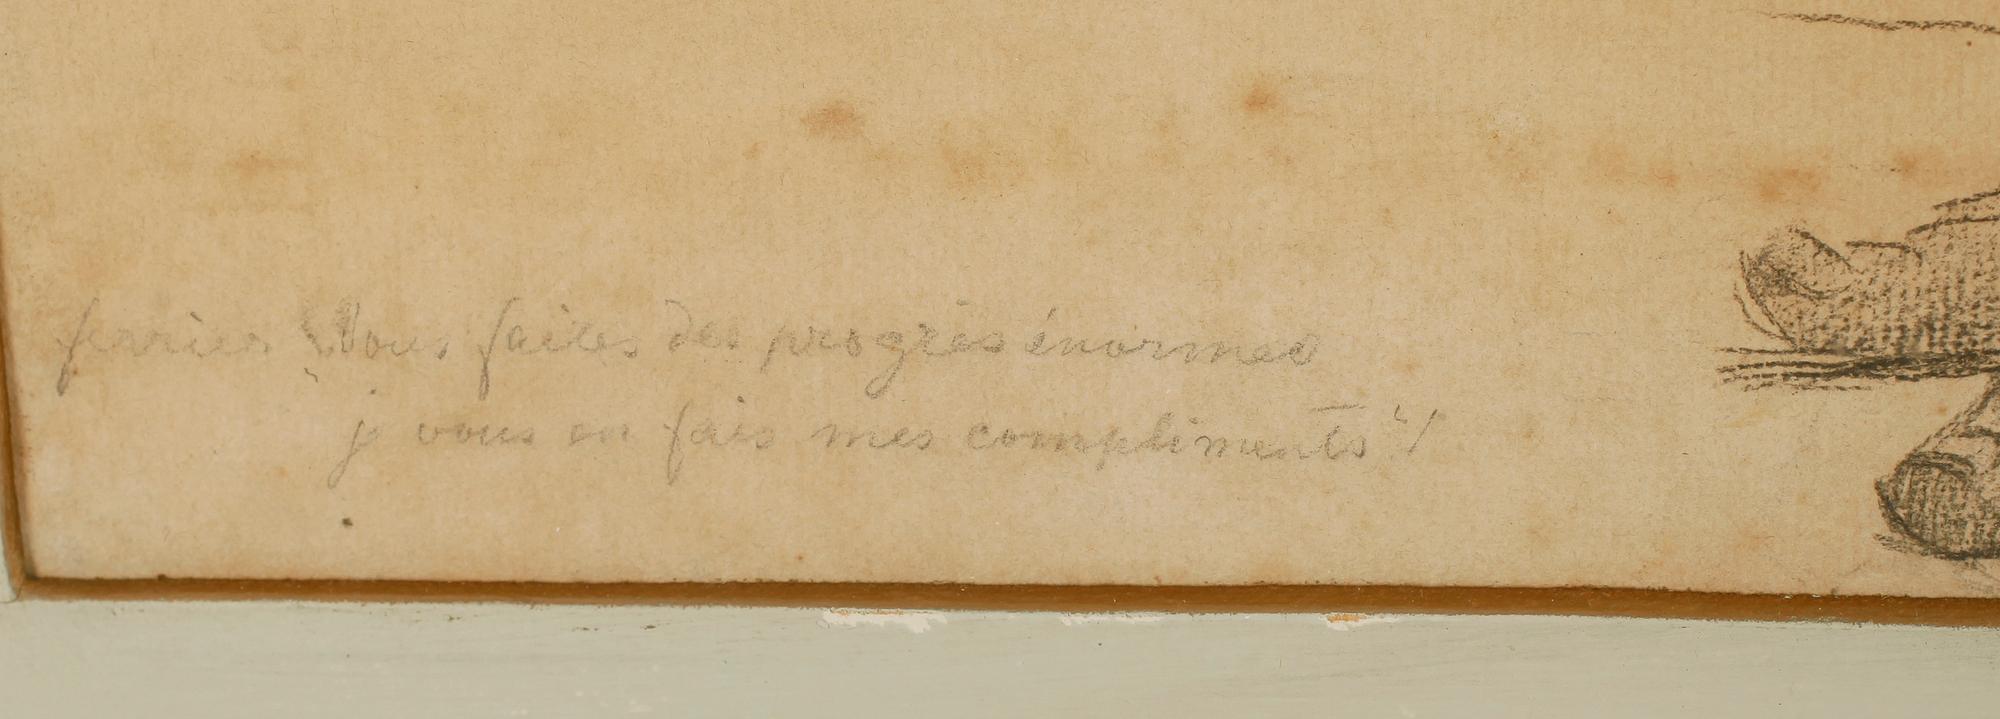 ferrier "Vous faites des progrès énormes
je vous en fais mes compliments"/